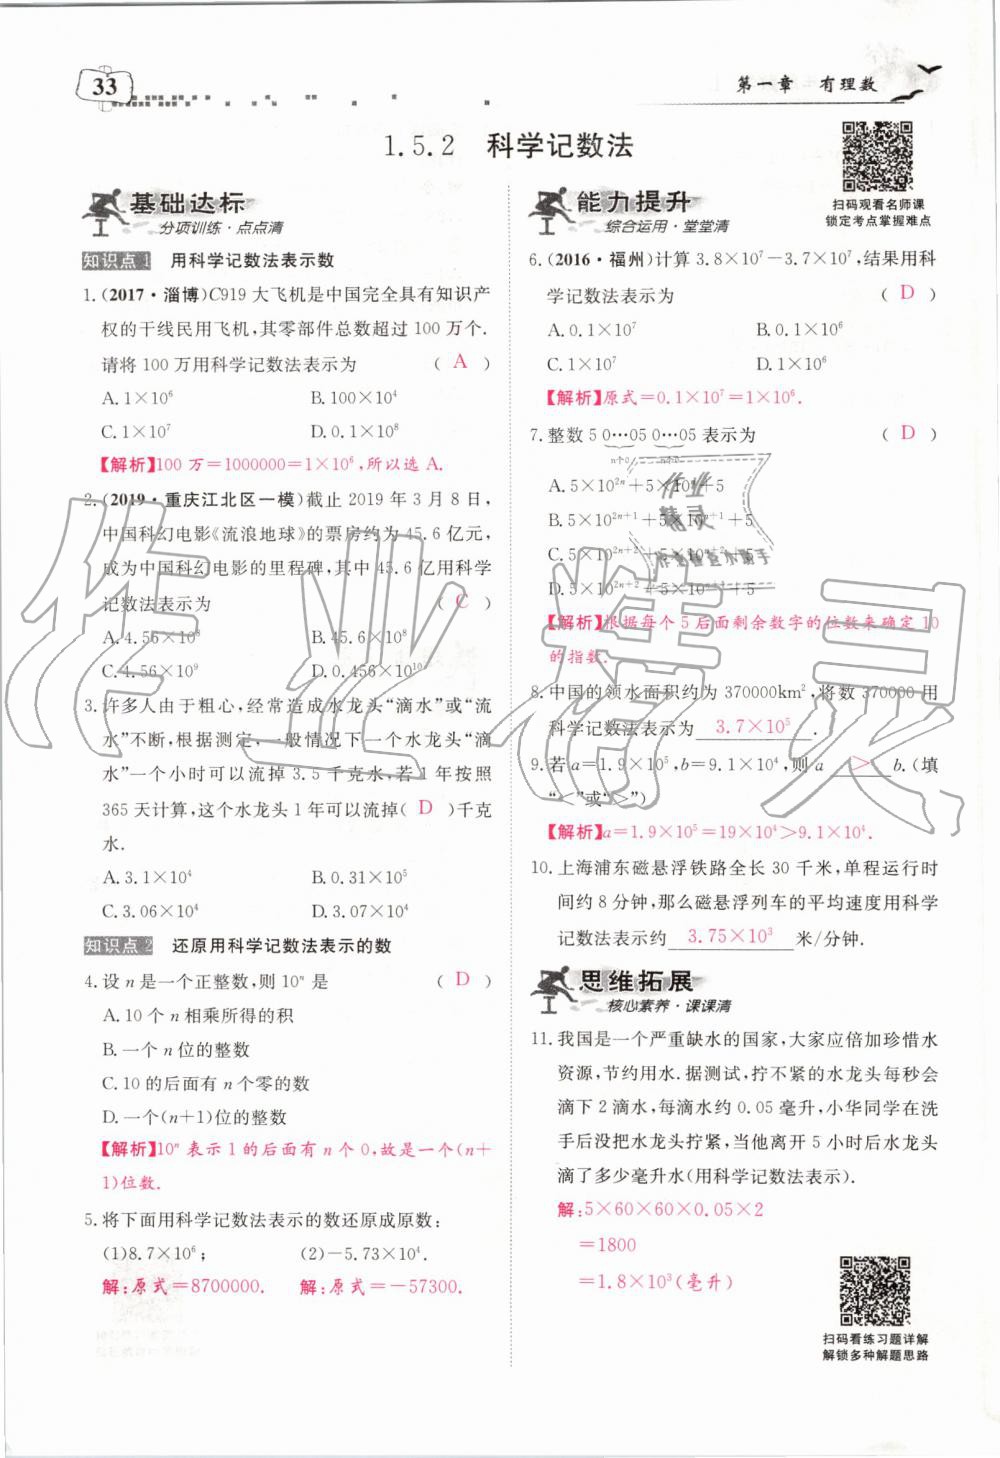 33
第一章　有理数
1.5.2　科学记数法
基础达标
分项训练·点点清
知识点1　用科学记数法表示数
1.(2017·淄博)C919大飞机是中国完全具有知识产
权的干线民用飞机,其零部件总数超过100万个.
请将100万用科学记数法表示为　(A)
A.1×10⁶　B.100×10⁴
C.1×10⁷　D.0.1×10⁸
【解析】100万=1000000=1×10⁶,所以选A.
2.(2019·重庆江北区一模)截止2019年3月8日,
中国科幻电影《流浪地球》的票房约为45.6亿元,
成为中国科幻电影的里程碑,其中45.6亿用科学
记数法表示为　(C)
A.4.56×10⁸　B.45.6×10⁸
C.4.56×10⁹　D.0.456×10¹⁰
3.许多人由于粗心,经常造成水龙头“滴水”或“流
水”不断,根据测定,一般情况下一个水龙头“滴
水”一个小时可以流掉3.5千克水,若1年按照
365天计算,这个水龙头1年可以流掉(D)千克
水.
A.3.1×10⁴　B.0.31×10⁵
C.3.06×10⁴　D.3.07×10⁴
知识点2　还原用科学记数法表示的数
4.设n是一个正整数,则10ⁿ是　(D)
A.10个n相乘所得的积
B.一个n位的整数
C.10的后面有n个零的数
D.一个(n+1)位的整数
【解析】10ⁿ表示1的后面有n个0,故是一个(n+
1)位数.
5.将下面用科学记数法表示的数还原成原数:
(1)8.7×10⁶;　(2)-5.73×10⁴.
解:原式=8700000.　解:原式=-57300.
能力提升
综合运用·堂堂清
扫码观看名师课
锁定考点掌握难点
6.(2016·福州)计算3.8×10⁷-3.7×10⁷,结果用科
学记数法表示为　(D)
A.0.1×10⁷　B.0.1×10⁶
C.1×10⁷　D.1×10⁶
【解析】原式=0.1×10⁷=1×10⁶.
7.整数5 0…05 0…05表示为　(D)
n个0　n个0
A.5×10²ⁿ+5×10ⁿ+5
B.5×10²ⁿ⁺¹+5×10ⁿ⁺¹+5
C.5×10²ⁿ⁺²+5×10ⁿ⁺²+5
D.5×10²ⁿ⁺²+5×10ⁿ⁺¹+5
【解析】根据每个5后面剩余数字的位数来确定10
的指数.
8.中国的领水面积约为370000km²,将数370000用
科学记数法表示为 3.7×10⁵ .
9.若a=1.9×10⁵,b=9.1×10⁴,则a > b.(填
“<”或“>”)
【解析】a=1.9×10⁵=19×10⁴>9.1×10⁴.
10.上海浦东磁悬浮铁路全长30千米,单程运行时
间约为8分钟,那么磁悬浮列车的平均速度用科学
记数法表示约 3.75×10³ 米/分钟.
思维拓展
核心素养·课课清
11.我国是一个严重缺水的国家,大家应倍加珍惜水
资源,节约用水.据测试,拧不紧的水龙头每秒会
滴下2滴水,每滴水约0.05毫升,小华同学在洗
手后没把水龙头拧紧,当他离开5小时后水龙头
滴了多少毫升水(用科学记数法表示).
解:5×60×60×0.05×2
=1800
=1.8×10³(毫升)
扫码看练习题详解
解锁多种解题思路
作业精灵
作业
精灵
作业检查小助手